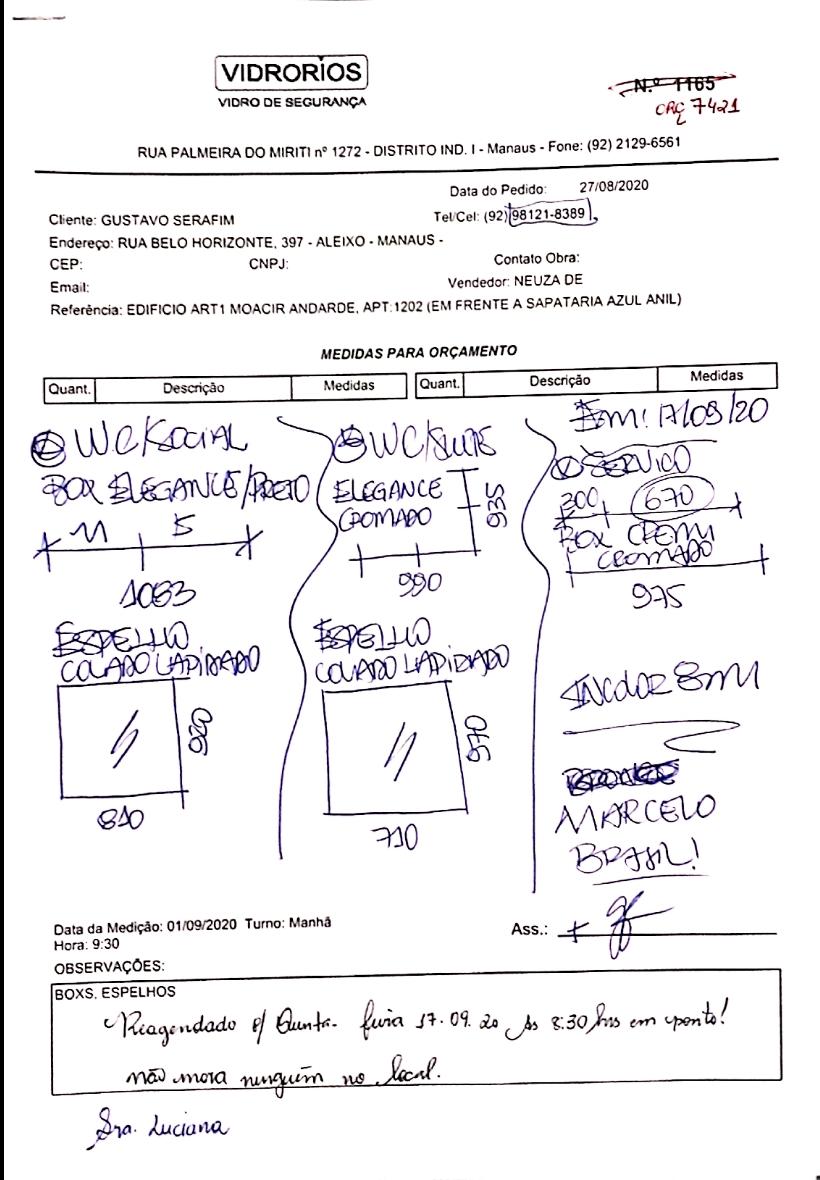 VIDRORIOS
VIDRO DE SEGURANÇA
N.º 1165
7421
RUA PALMEIRA DO MIRITI nº 1272 - DISTRITO IND. I - Manaus - Fone: (92) 2129-6561
Data do Pedido: 27/08/2020
Cliente: GUSTAVO SERAFIM Tel/Cel: (92) 98121-8389
Endereço: RUA BELO HORIZONTE, 397 - ALEIXO - MANAUS -
CEP: CNPJ: Contato Obra:
Email: Vendedor: NEUZA DE
Referência: EDIFICIO ART1 MOACIR ANDARDE, APT:1202 (EM FRENTE A SAPATARIA AZUL ANIL)
MEDIDAS PARA ORÇAMENTO
Quant. Descrição Medidas Quant. Descrição Medidas
WC/SOCIAL
BOX ELEGANCE/PRETO
1083
ESPELHO
COLADO LAPIDADO
920
810
WC/SUITE
ELEGANCE
CROMADO
935
990
ESPELHO
COLADO LAPIDADO
970
710
EM: 17/09/20
SERVICO
300 670
BOX
CROMADO
975
INCOLOR 8MM
MARCELO
BRASIL!
Data da Medição: 01/09/2020 Turno: Manhã
Hora: 9:30
Ass.:
OBSERVAÇÕES:
BOXS, ESPELHOS
Reagendado p/ Quinta-feira 17.09.20 às 8:30 hrs em ponto!
não mora ninguém no local.
Sra. Luciana